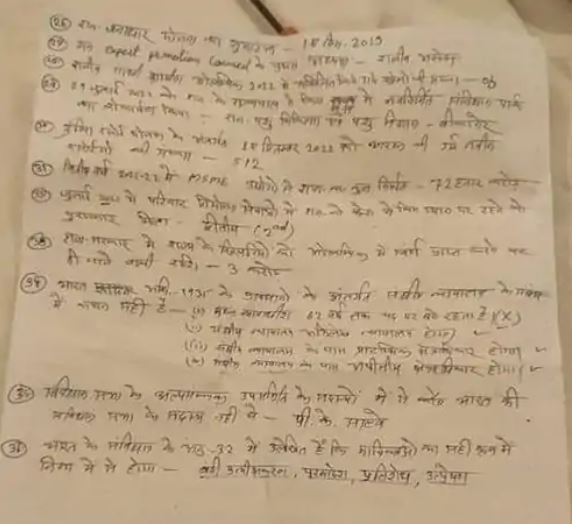 (26) राज. जनाधार योजना का शुभारम्भ - 18 दिस. 2019
(27) राज. Export promotion Council के प्रथम अध्यक्ष - राजीव अरोड़ा
(28) राजीव गांधी ग्रामीण ओलंपिक 2022 में सम्मिलित किये गये खेलों की संख्या - 06
में नवनिर्मित संविधान पार्क
का लोकार्पण किया - राज. पशु चिकित्सा एवं पशु विज्ञान - बीकानेर
(30) इंदिरा रसोई योजना के अंतर्गत 18 सितम्बर 2022 को आरम्भ की गई नवीन
रसोईयों की संख्या - 512
(31) वित्तीय वर्ष 2021-22 में MSME उद्योगों से राज. का कुल निर्यात - 72 हजार करोड़
(32) जुलाई में परिवार नियोजन सेवाओं में राज. को देश में किस स्थान पर रहने का
पुरस्कार मिला - द्वितीय (2nd)
(33) राज. सरकार में राज्य के खिलाड़ियों को ओलम्पिक में स्वर्ण प्राप्त करने पर
दी जाने वाली राशि - 3 करोड़
(34) भारत अधि. 1935 के प्रावधानों के अंतर्गत संघीय न्यायालय के संबंध
में कथन सही है - (i) मुख्य न्यायाधीश 62 वर्ष तक पद पर बने रहता है। (X)
(ii) संघीय न्यायालय अभिलेख न्यायालय होगा ✓
(iii) संघीय न्यायालय के पास प्रारंभिक क्षेत्राधिकार होगा ✓
(iv) संघीय न्यायालय के पास अपीलीय क्षेत्राधिकार होगा। ✓
(35) संविधान सभा के अल्पसंख्यक उपसमिति के सदस्यों में से कौन भारत की
संविधान सभा के सदस्य नहीं थे - पी. के. साल्वे
(36) भारत के संविधान के अनु-32 में उल्लेखित है कि याचिकाओं का सही क्रम में
निम्न में से होगा - बंदी प्रत्यक्षीकरण, परमादेश, प्रतिषेध, उत्प्रेषण